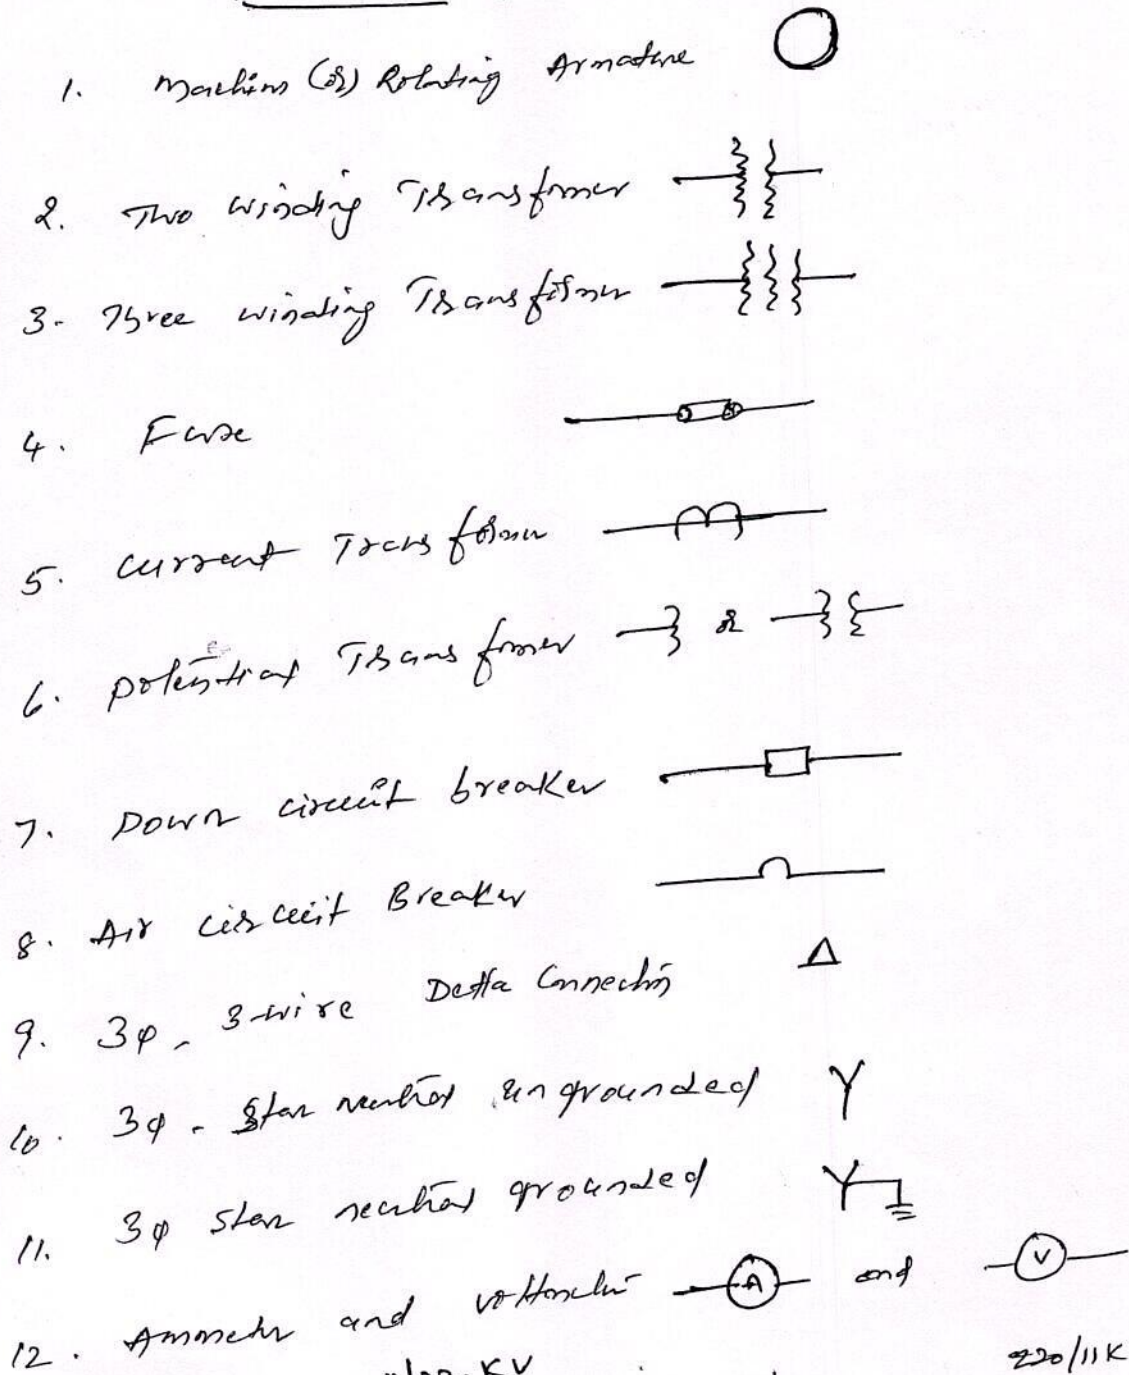 1. Machine (or) Rotating Armature
2. Two winding Transformer
3. Three winding Transformer
4. Fuse
5. Current Transformer
6. Potential Transformer or
7. Power circuit breaker
8. Air circuit Breaker
9. 3φ, 3-wire Delta Connection Δ
10. 3φ - Star neutral ungrounded Y
11. 3φ Star neutral grounded Y
12. Ammeter and voltmeter A and V
KV 220/11K